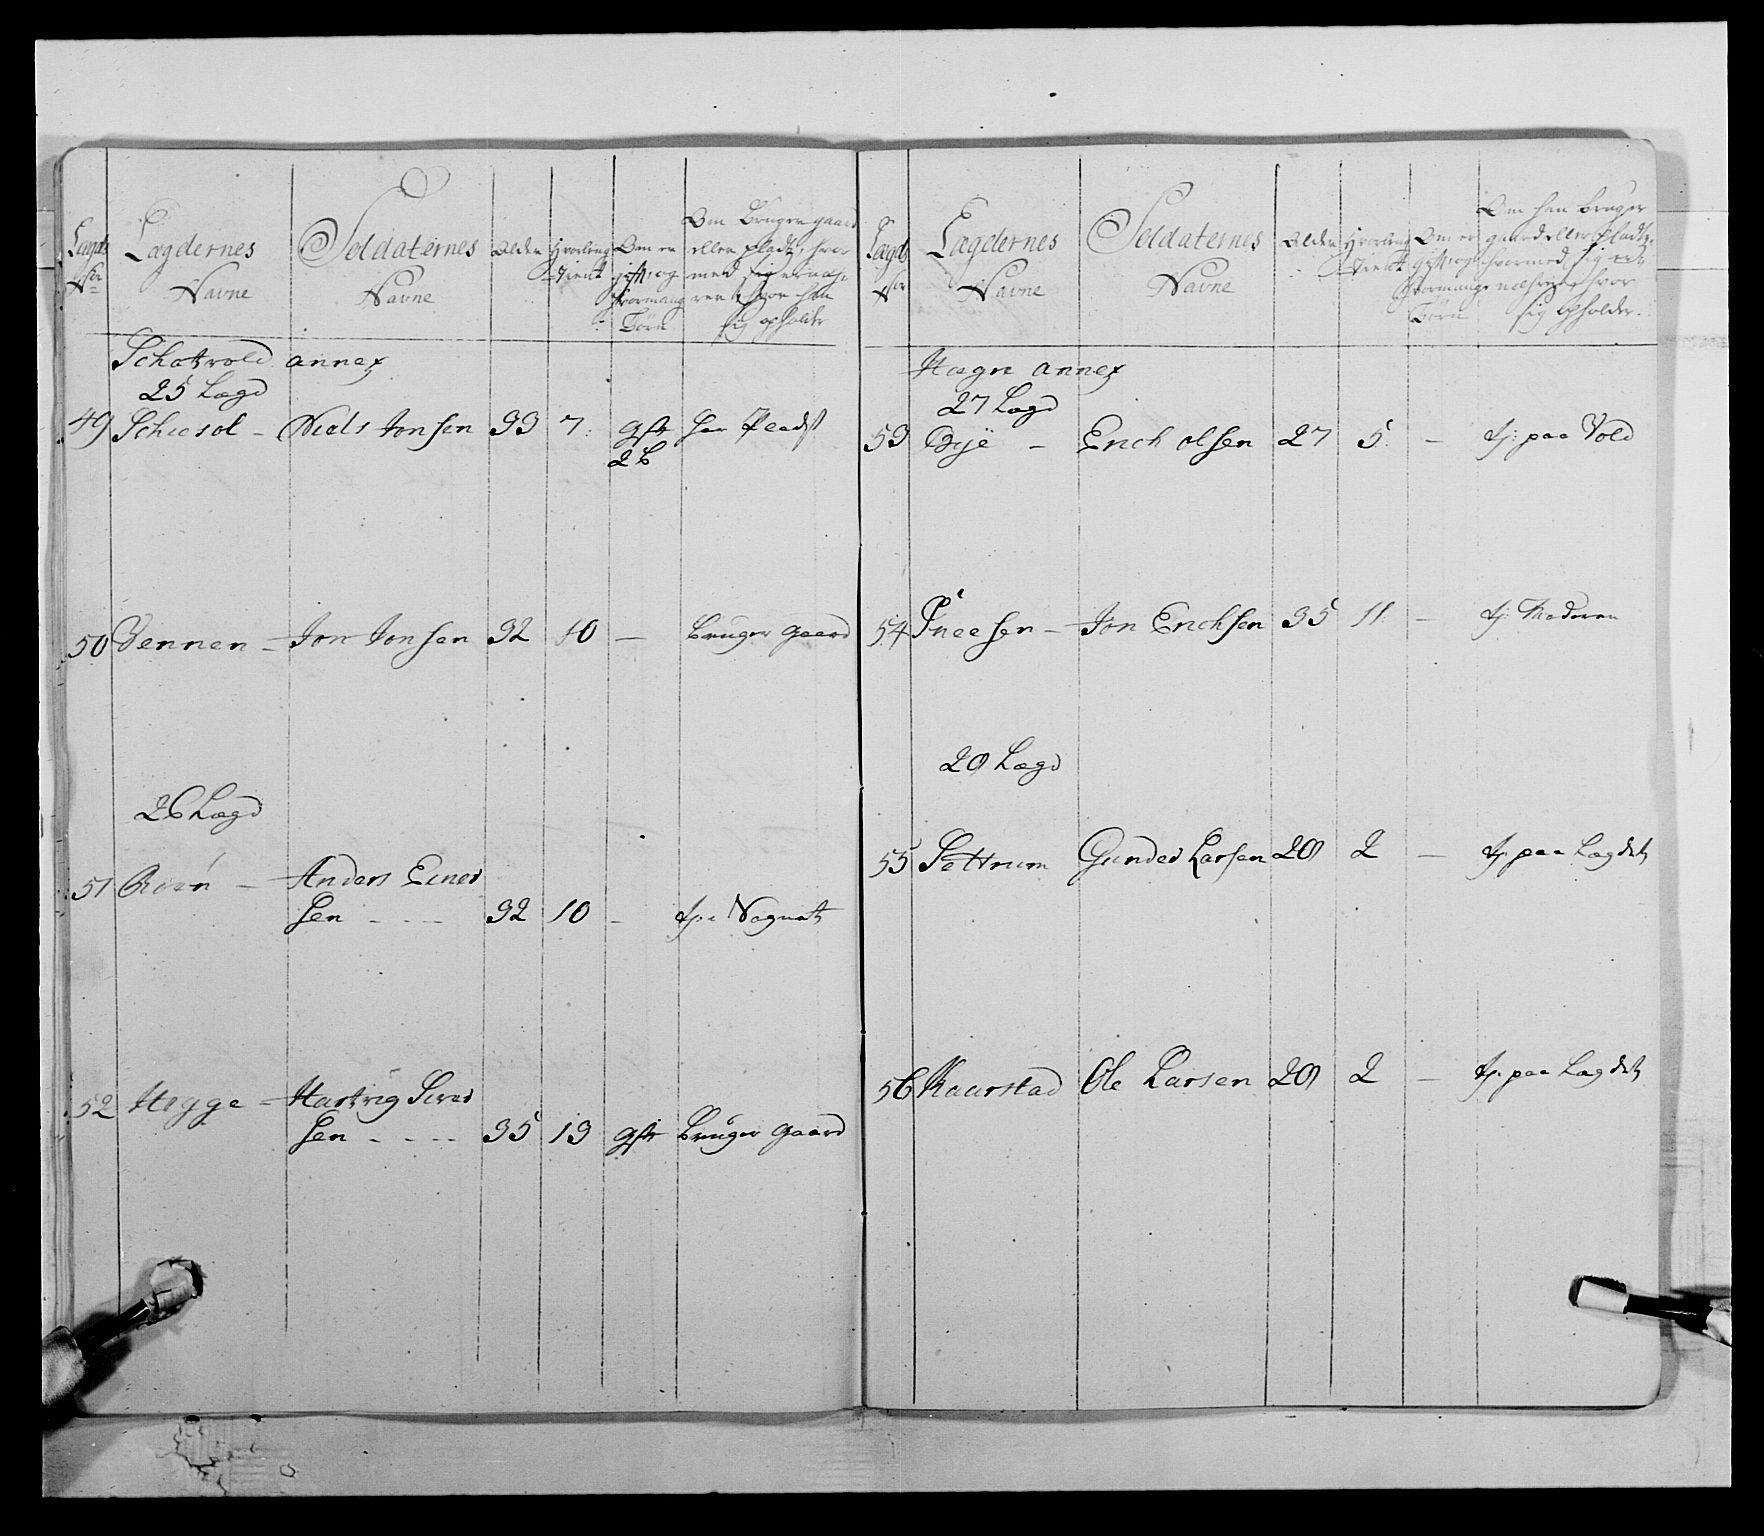 Lægdernes Navne
Soldaternes Navne
Alder
Hvorleng Tient
Om er gift og hvormang Børn
Om Bruger gaard eller pladtz hvormed sig ernærer hvor han sig opholder
Schatvold annex
25 Lægd
49 Schiesol - Niels Jonsen 33 7. gift 2 b har Pladst
50 Vennen - Jon Jonsen 32 10 - Bruger gaard
26 Lægd
51 - Anders Einer
sen - - - 32 10 -
52 Hegge - Hartvig Siver
sen - - - 35 13 gift Bruger gaard
Lægdernes Navne
Soldaternes Navne
Alder
Hvorleng Tient
Om er gift og hvormange Børn
Om han bruger gaard eller pladtz hvormed sig ernæhrer hvor sig opholder.
Hægre annex
27 Lægd
53 Øye - Erich olsen 27 5. - tj: paa Vold
54 - Jon Erichsen 35 11. - tj:
28 Lægd
55 Settrum Gunder Larsen 28 2 - tj. paa Lægdet
56 Kaarstad Ole Larsen 28 2 - tj. paa Lægdet